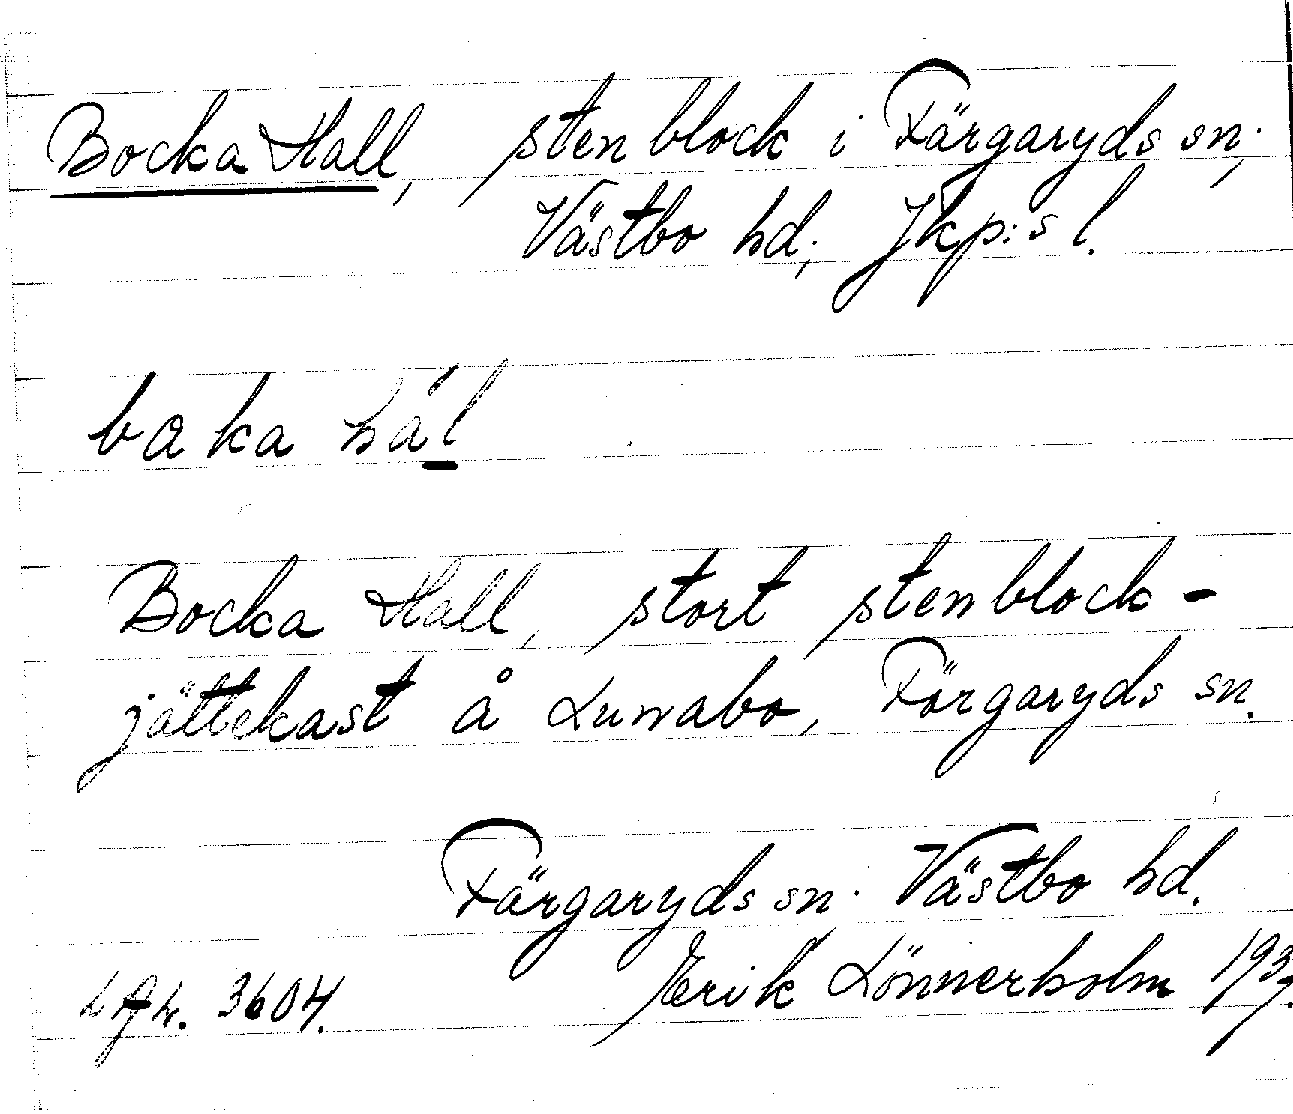 Bocka Hall, stenblock i Färgaryds sn;
Västbo hd; Jkp:s l.
baka hál
Bocka Hall, stort stenblock -
jättekast å Lunnabo, Färgaryds sn.
Färgaryds sn. Västbo hd.
3604. Erik Lönnerholm 1937.